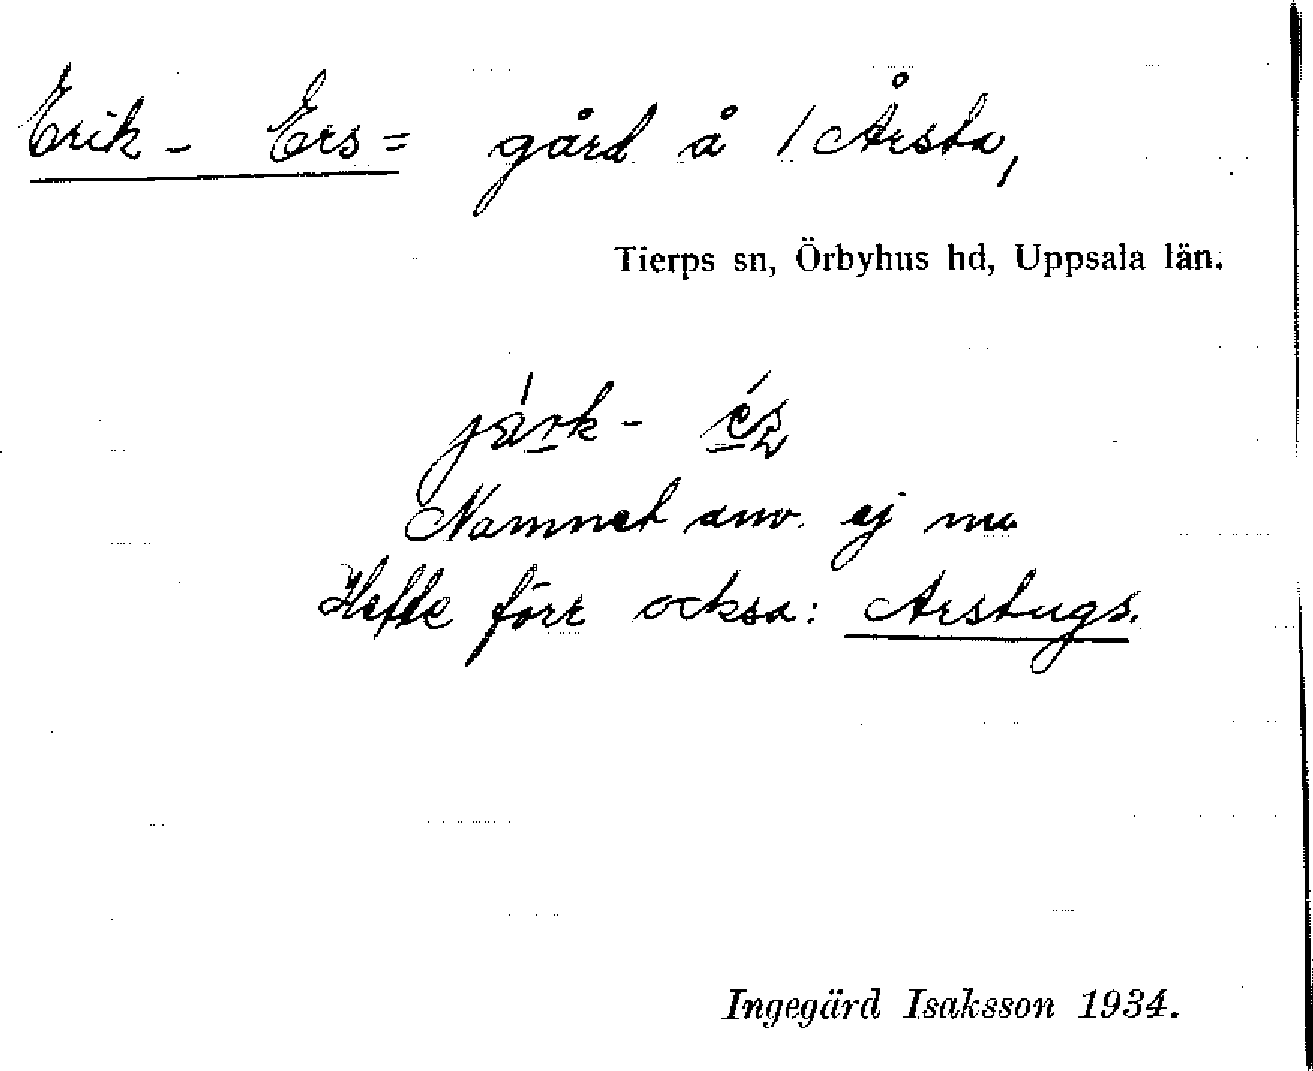 Erik- Ers= gård å 1 Årsta,
Tierps sn, Örbyhus hd, Uppsala län.
Namnet anv. ej nu
Hette förr också: Arstugs.
Ingegärd Isaksson 1934.